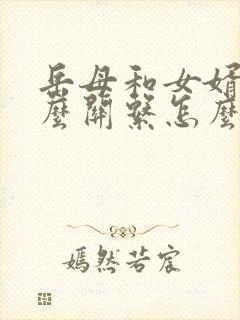 岳母和女婿
麼關繫怎麼
嫣然若宸